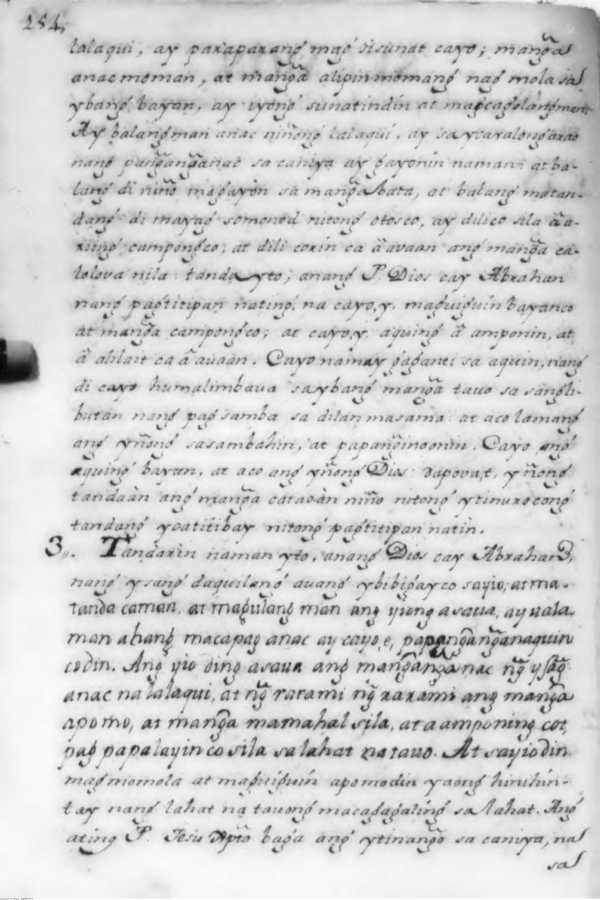 254,
lalaqui, ay paraparang̃ mag̃ sisunat cayo; mang̃a
anac moman, at mang̃a alipin momang̃ nag̃ mola sa
ybang̃ bayan, ay iyong̃ sunatindin at
Ay balang̃man anac niñong̃ lalaqui, ay sa ycaualong̃ arao
nang̃ pang̃ang̃anac sa caniya ay g̃ayonin naman: at ba-
lang̃ di niño mag̃ayon sa mang̃a bata, at balang̃ matan-
dang̃ di mayag̃ somonod nitong̃ otosco, ay dilico sila ãa-
riing̃ campong̃co; at dili corin ca ãauaan ang mang̃a ca-
lolova nila: tanda yto; anang̃ P. Dios cay Abrahan
nang̃ pag̃titipan nating̃ na cayo,y, mag̃uiguin bayanco
at mang̃a campong̃co; at cayo,y, aquing̃ ã amponin, at
ã alilait ca ã auaàn. Cayo nama,y g̃ag̃anti sa aquin, nang
di cayo humalimbaua sa ybang̃ mang̃a tauo sa sang̃li-
butan nang̃ pag̃ samba sa dilan masama: at aco lamang̃
ang̃ yñong̃ sasambahin, at papang̃inoonin. Cayo ang̃
aquing̃ bayan, at aco ang yñong̃ Dios: sapova,t, yñong̃
tandaàn ang̃ mang̃a cataoàn niño nitong̃ ytinurocong̃
tandang̃ ycatitibay nitong̃ pag̃titipan natin.
3,,. Tandarin naman yto, anang̃ Dios cay Abrahan,
nang̃ ysang̃ daquilang̃ auang̃ ybibig̃ayco saiyo; at ma-
tanda caman, at mag̃ulang̃ man ang iyong asaua, ay uala
man ahang̃ macapag̃ anac ay cayo,e, papang̃ang̃anaquin
codin. Ang̃ iyo ding asaua ang mang̃ang̃anac ng̃ ysãg̃
anac na lalaqui, at ng̃ rarami ng̃ rarami ang mang̃a
apo mo, at mang̃a mamahal sila, at aamponing co,t,
pag̃ papalayin co sila sa lahat na tauo. At saiyo din
mag̃momola at mag̃uiguin apo modin yaong hinihin-
tay nang̃ lahat na tauong macag̃ag̃aling̃ sa lahat. Ang̃
ating P. Jesu Xp̃to bag̃a ang̃ ytinang̃o sa caniya, na
sa